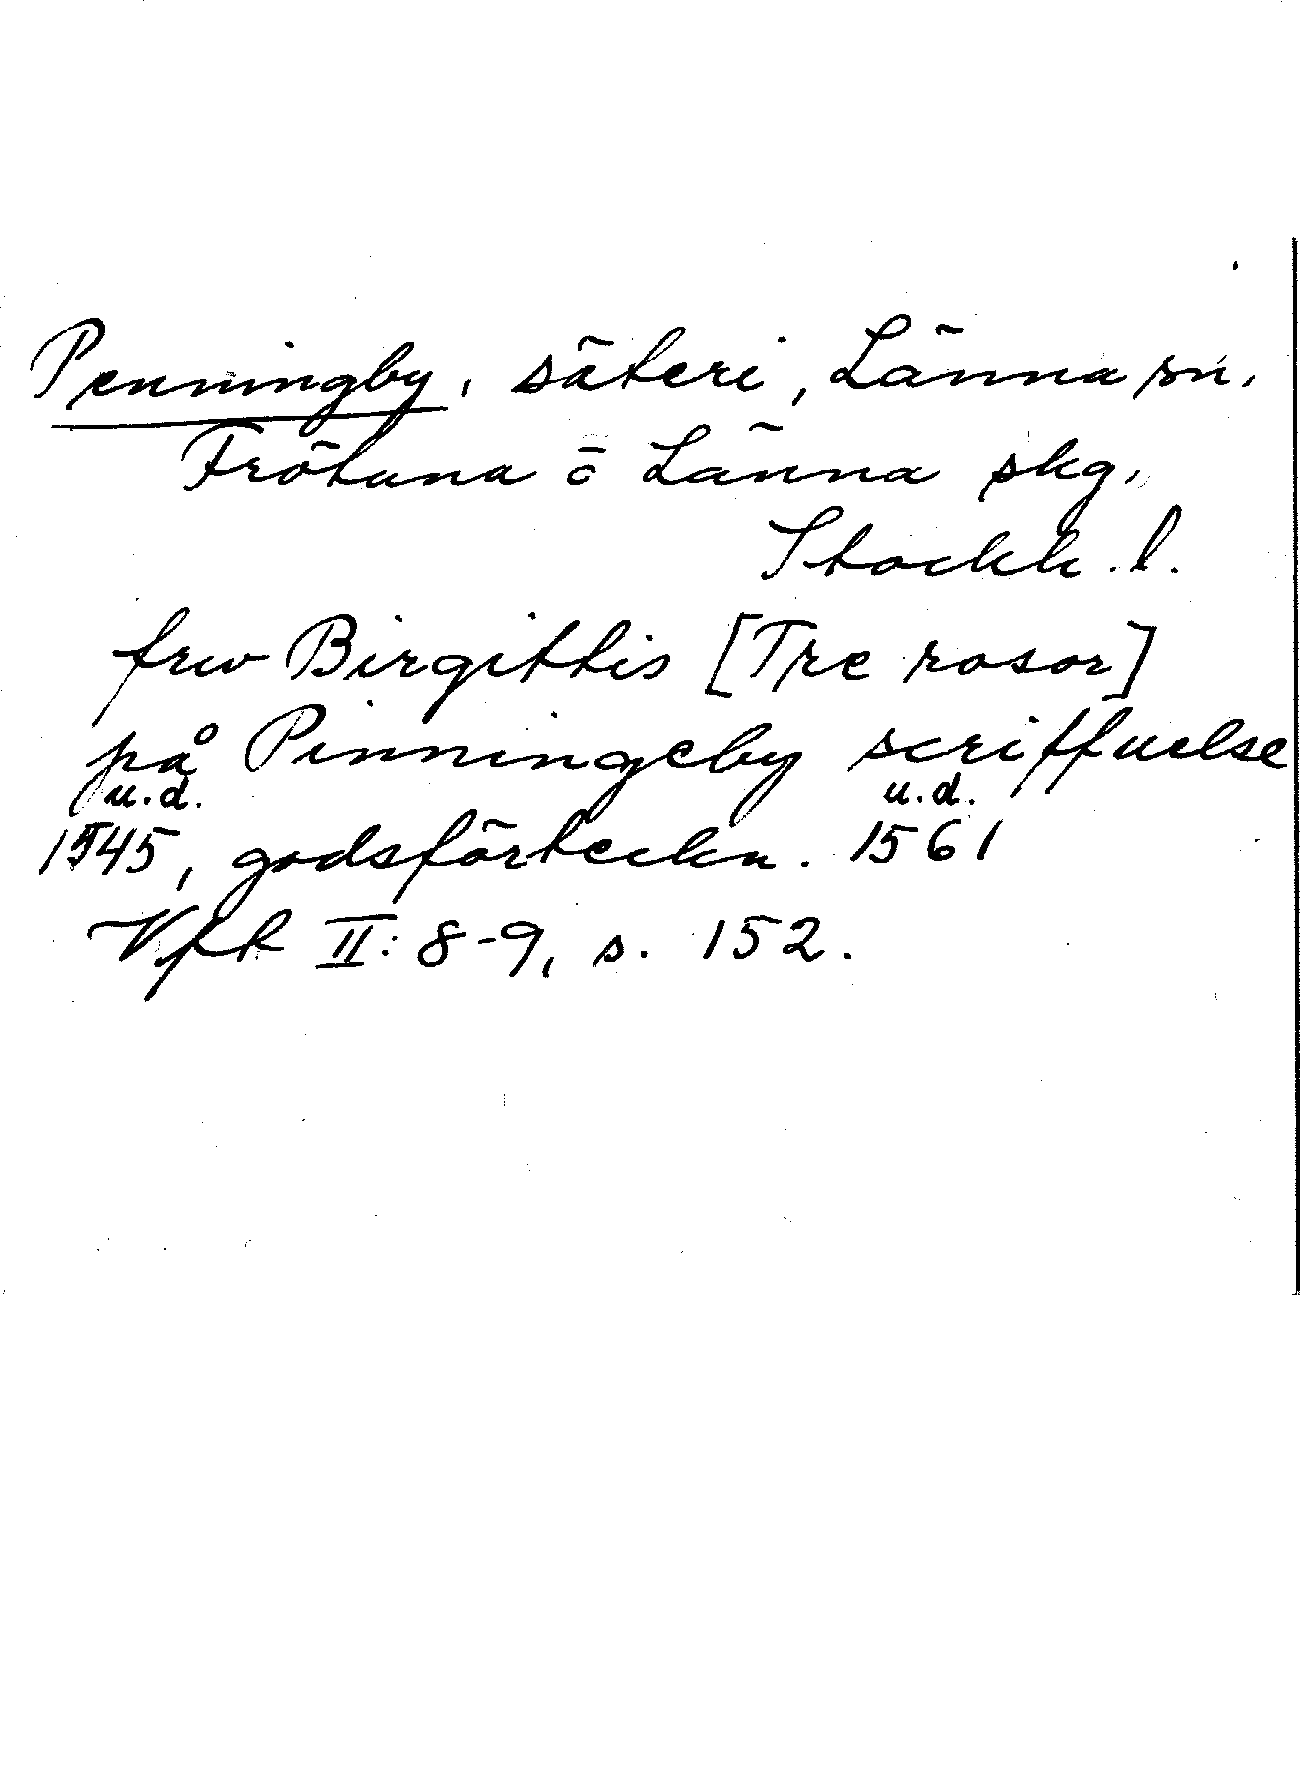 Penningby, säteri, Länna sn,
Frötuna o Länna skg,
Stockh. l.
frw Birgittis [Tre rosor]
på Pinningeby scriffuelse
u.d. u.d.
1545, godsförteckn. 1561
Vfr II: 8-9, s. 152.